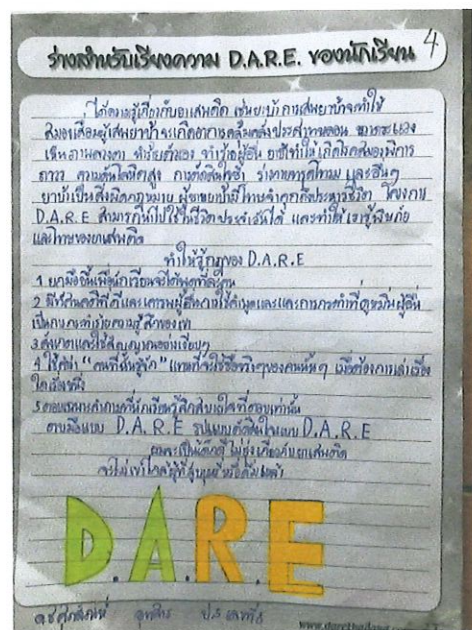 ร่างสำหรับเรียงความ D.A.R.E. ของนักเรียน 4
ได้ความรู้เกี่ยวกับยาเสพติด เช่นยาบ้า การเสพยาบ้าจะทำให้
สมองเสื่อมผู้เสพยาบ้าจะเกิดอาการคลุ้มคลั่งประสาทหลอน หวาดระแวง
เห็นภาพลวงตา ทำร้ายตัวเอง ทำร้ายผู้อื่น ยาบ้าทำให้เกิดโรคสมองพิการ
ถาวร ความดันโลหิตสูง การตัดสินใจช้า ร่างกายทรุดโทรม และอื่นๆ
ยาบ้าเป็นสิ่งผิดกฎหมาย ผู้ขายยาบ้ามีโทษจำคุกถึงประหารชีวิต โครงการ
D.A.R.E สามารถนำไปใช้ในชีวิตประจำวันได้ และทำให้เรารู้พิษภัย
และโทษของยาเสพติด
ทำให้รู้กฎของ D.A.R.E
1 ยกมือขึ้นเพื่อนักเรียนจะได้พูดทีละคน
2 มีทัศนคติที่ดีและเคารพผู้อื่นการใช้คำพูดและการกระทำที่ดูหมิ่นผู้อื่น
เป็นการทำร้ายความรู้สึกของเขา
3 สังเกตและใช้สัญญาณอย่างเงียบๆ
4 ใช้คำว่า "คนที่ฉันรู้จัก" แทนที่จะใช้ชื่อจริงๆของคนนั้นๆ เมื่อต้องการเล่าเรื่อง
ใดเรื่องหนึ่ง
5 ตอบเฉพาะคำถามที่นักเรียนรู้สึกสบายใจที่จะตอบเท่านั้น
แบบ D.A.R.E รูปแบบตัดสินใจแบบ D.A.R.E
ผมจะเป็นเด็กดี ไม่ยุ่งเกี่ยวกับยาเสพติด
จะไม่เข้าใกล้ผู้ที่สูบบุหรี่หรือดื่มเหล้า
D.A.R.E
ด.ช.